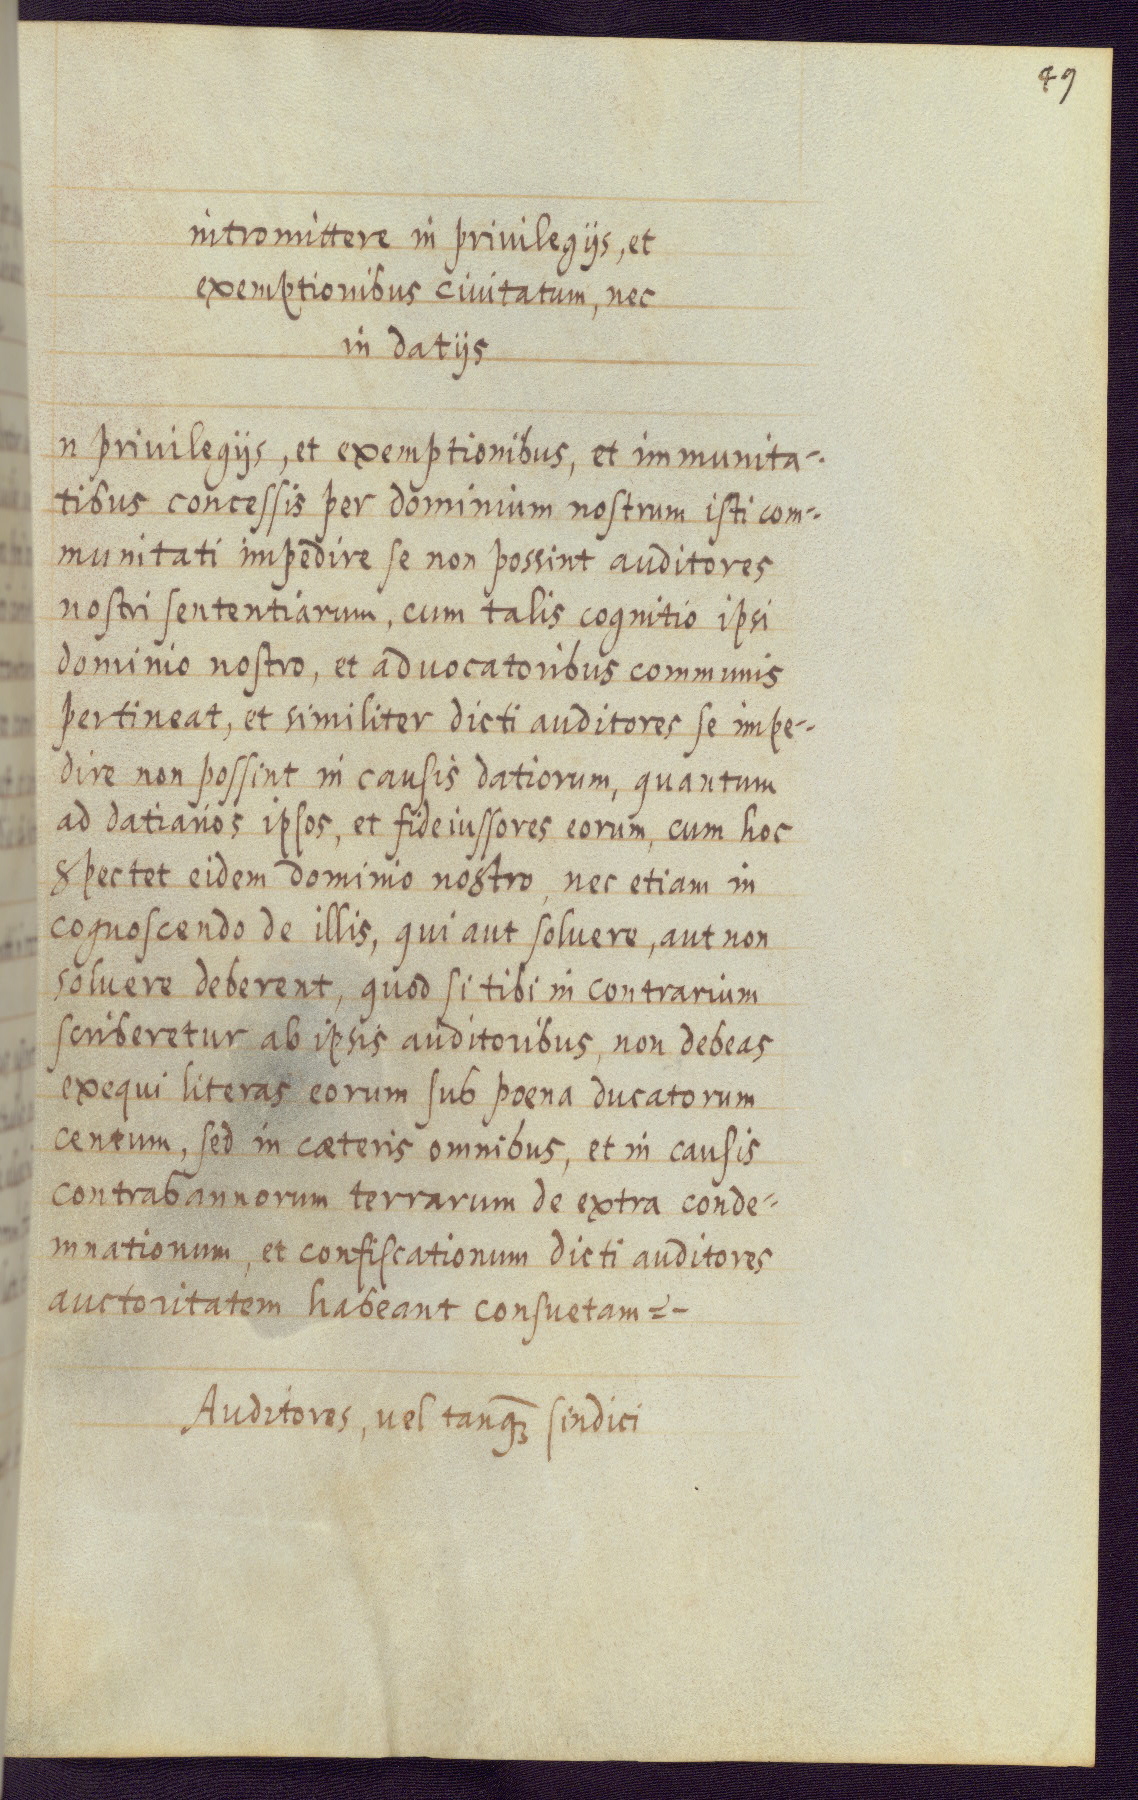 49
intromittere in privilegijs, et
exemptionibus civitatum, nec
in datijs
n privilegijs, et exemptionibus, et immunita-
tibus concessis per dominium nostrum isti com-
munitati impedire se non possint auditores
nostri sententiarum, cum talis cognitio ipsi
dominio nostro, et advocatoribus communis
pertineat, et similiter dicti auditores se impe-
dire non possint in causis datiorum, quantum
ad datiarios ipsos, et fideiussores eorum, cum hoc
spectet eidem dominio nostro, nec etiam in
cognoscendo de illis, qui aut soluere, aut non
soluere deberent, quod si tibi in contrarium
scriberetur ab ipsis auditoribus, non debeas
exequi literas eorum sub poena ducatorum
centum, sed in cæteris omnibus, et in causis
contrabannorum terrarum de extra conde-
mnationum, et confiscationum dicti auditores
auctoritatem habeant consuetam=-
Auditores, uel tanq̃ꝫ sindici